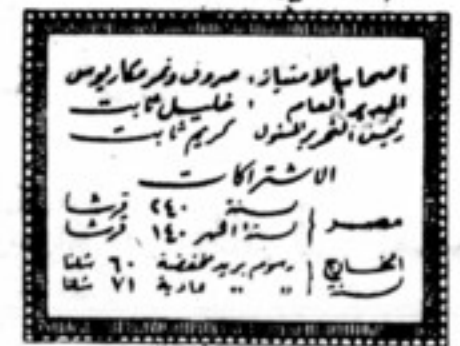 أصحاب الامتياز: صروف ونمر مكاريوس
المدير العام : خليل ثابت
رئيس التحرير المسئول كريم ثابت
الاشتراكات
مصر { سنة ٢٤٠ قرشا
ستة أشهر ١٤٠ قرشا
الخارج { رسوم بريد مخفضة ٦٠ شلنا
سنة " " عادية ٧١ شلنا